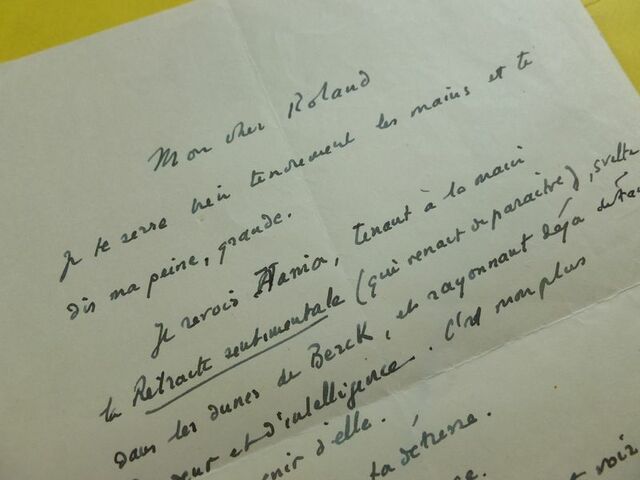 Mon cher Roland
Je te serre bien tendrement les mains et te
dis ma peine, grande.
Je revois Hania, tenant à la main
la Retraite sentimentale (qui venait de paraître), svelte
dans les dunes de Berck, et rayonnant déjà
et d'intelligence. C'est mon plus
d'elle.
ta détresse.
et